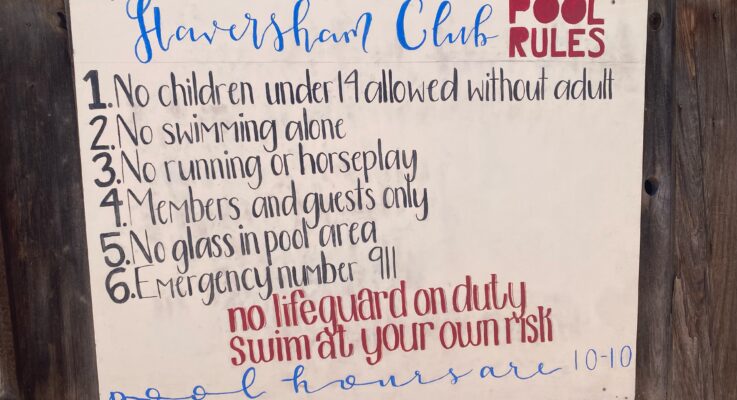 Haversham Club POOL RULES
1. No children under 14 allowed without adult
2. No swimming alone
3. No running or horseplay
4. Members and guests only
5. No glass in pool area
6. Emergency number 911
no lifeguard on duty
swim at your own risk
pool hours are 10-10